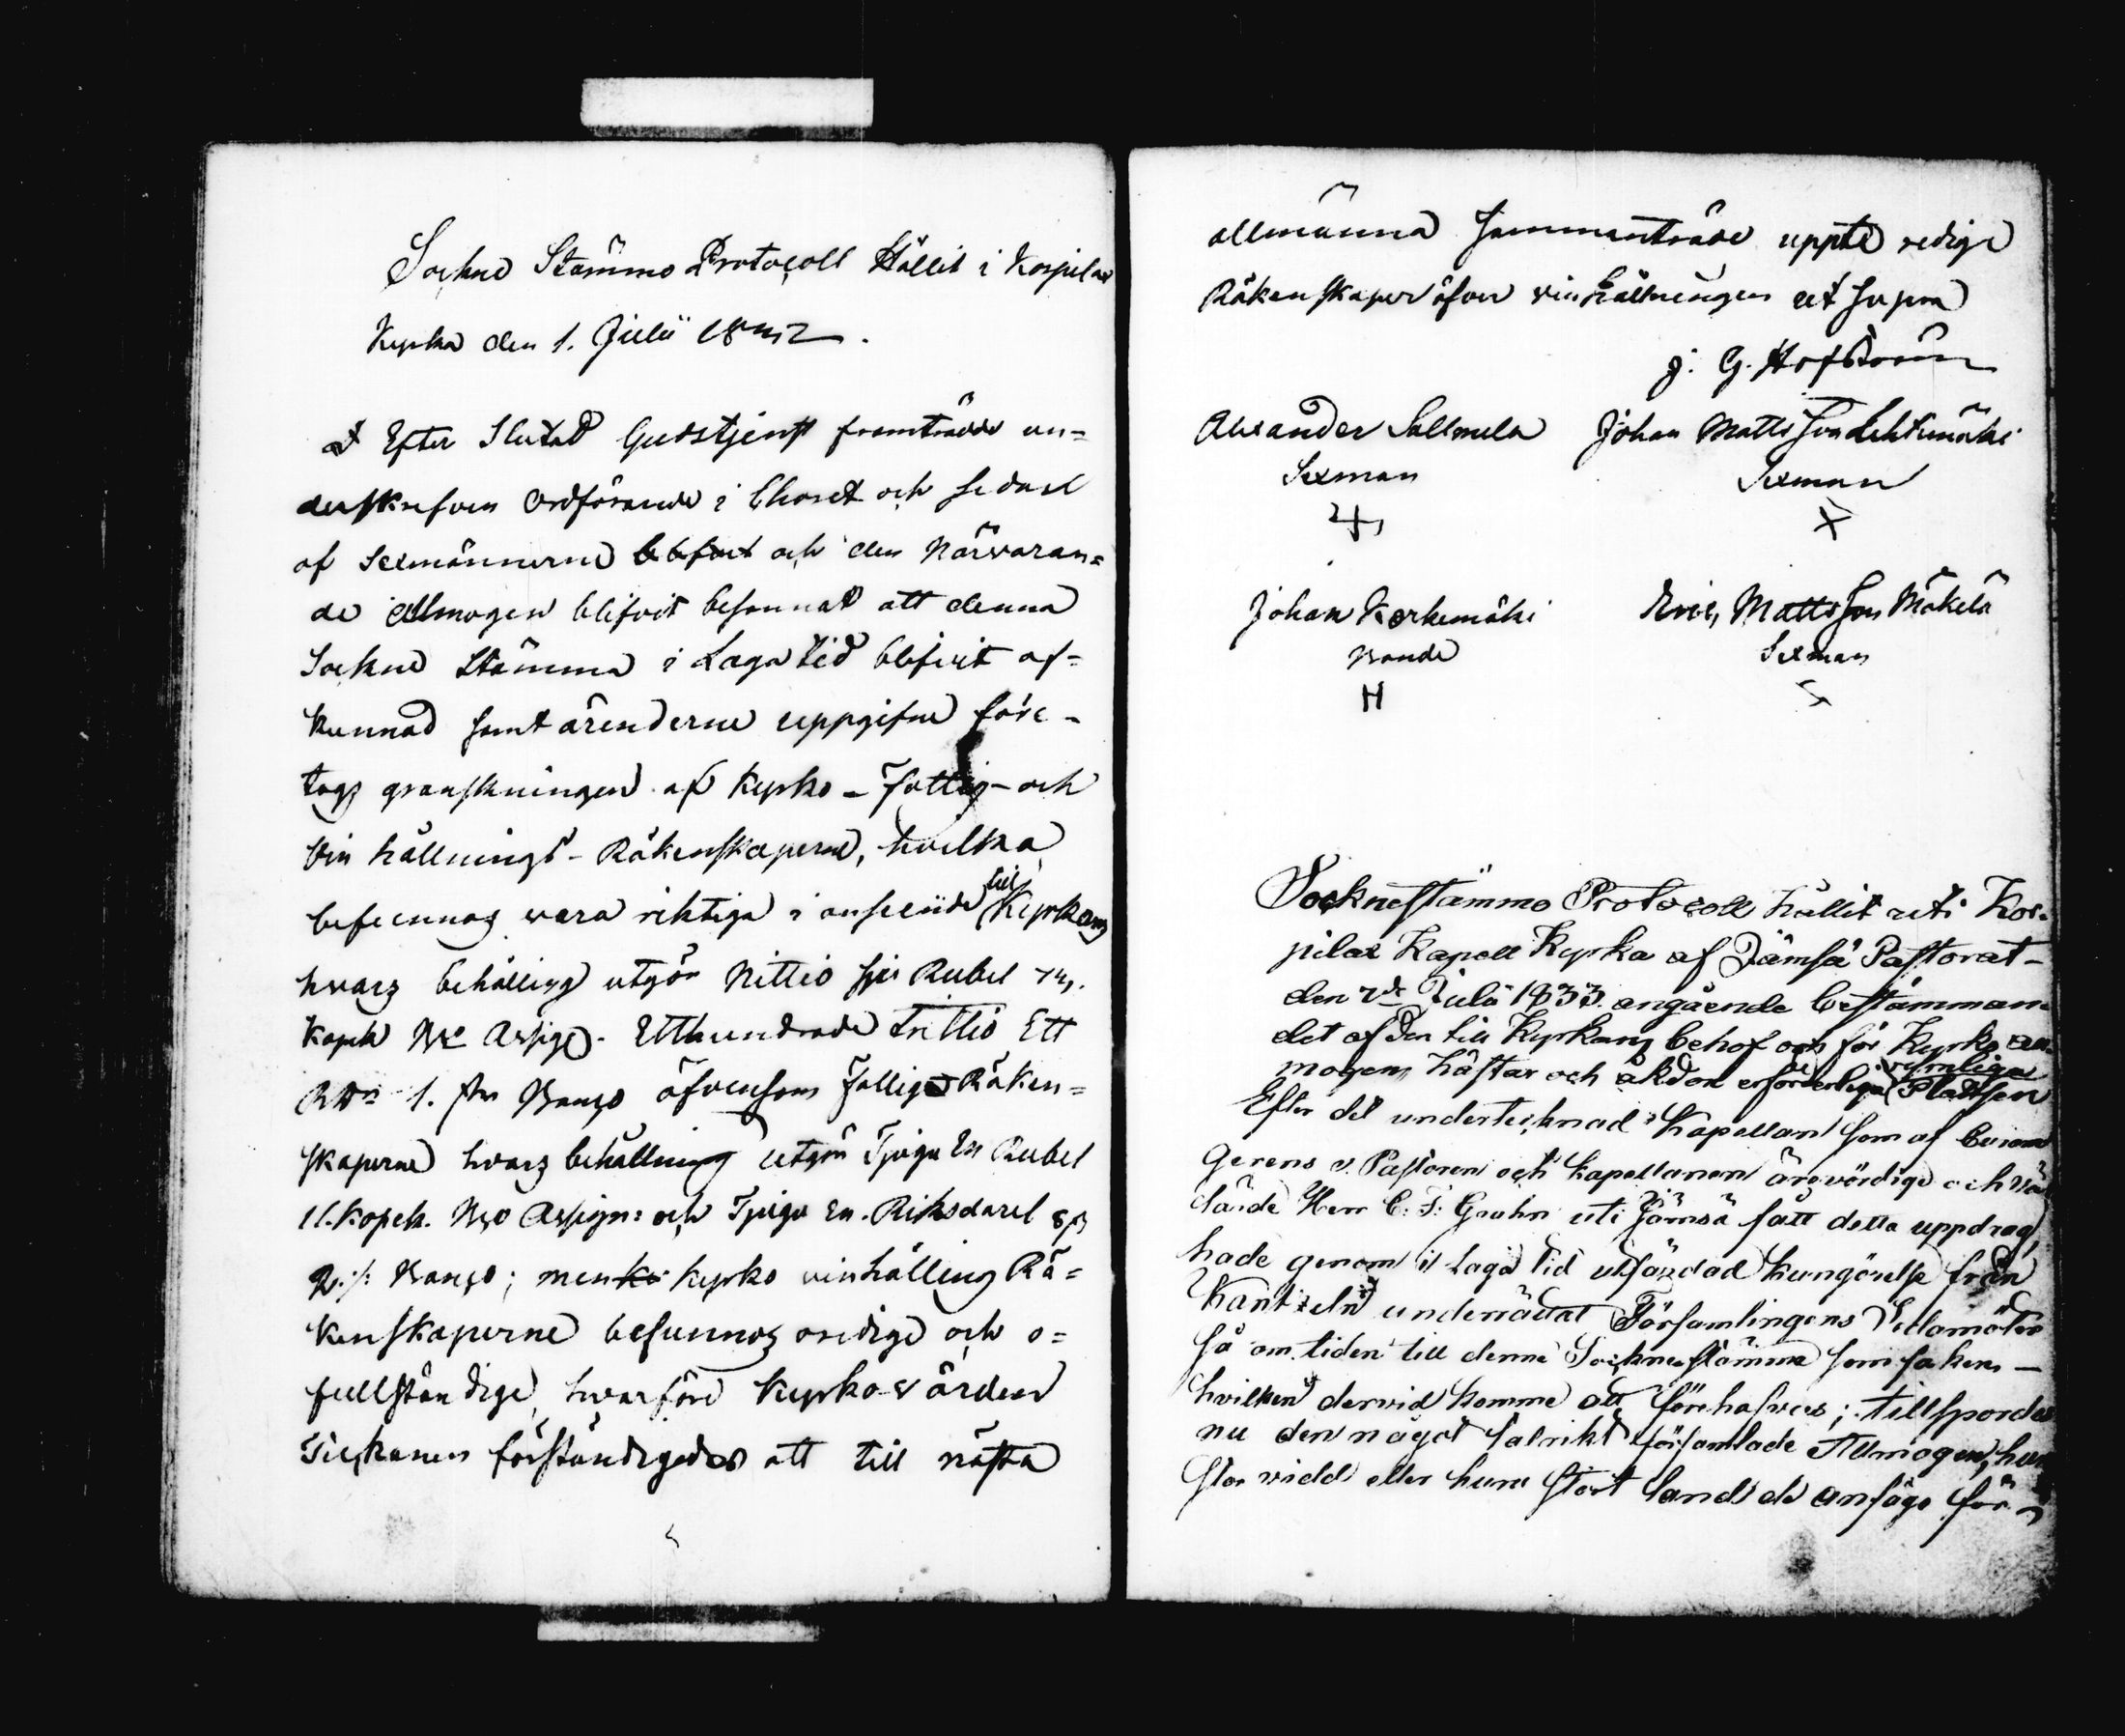 Sockne Stämmo Protocoll Hållit i Korpilax
Kyrka den 1. Julii
Efter Slutad Gudstjenst framträdde un=
derskrefven Ordförande i Choret och sedan
af Sexmännerne och den Närvaran=
de Allmogen blifvit besannat att denna
Sockne Stämma i Laga tid blifvit af=
kunnad samt ärenderne uppgifne före-
togs granskningen af Kyrko- Fattig- och
Vin hållnings- Räkenskaperne, hvilka
befunnos vara riktiga i anseende till Kyrkans
hvars behålling utgör Nittio Rubel
Kopek Bco Assign. Etthundrade Trettio Ett
RDr 1. Banco äfvensom Fattig Räken=
skaperne hvars behållning utgör Tjugu En Rubel
11. Kopek. Bco Assign: och Tjugu En Riksdaler 8 sk
Banco; men Kyrko vinhålling Rä=
kenskaperne befunnos oredige och o=
fullständige, hvarföre Kyrko-värden
förständigades att till nästa
allmänna Sammanträde uppte redige
Räkenskaper öfver vinhållningen ut supra
J. G. Hofström
Alexander Sallmela Johan Matts Son Lehtimäki
Sexman Sexman
Johan Kerkemäki Eric Matts Son Mäkelä
Bonde Sexman
H
Sockneståmmo Protocoll hållit uti Kor-
pilax Kapell Kyrka af Jämsä Pastorat-
den 7de Julii 1833. angående bestämman-
det af den till Kyrkans behof och för Kyrko all-
mogens hästar och åkdon erforderliga rymliga Plattsen
Efter det undertecknad Kapellan som af
Gerens v. Pastoren och Kapellanen ärevördige och väl
lärde Herr C. F. Grahn uti Jämsä fått detta uppdrag,
hade genom i Laga tid utfärdad Kungörelse från
Kantzeln underrättat Församlingens Ledamöter
så om tiden till denne Socknestämma som saken-
hvilken dervid komme att förehafvas; tillspordes
nu den något talrikt församlade Allmogen, huru
stor vidd eller huru stort land de ansågo för